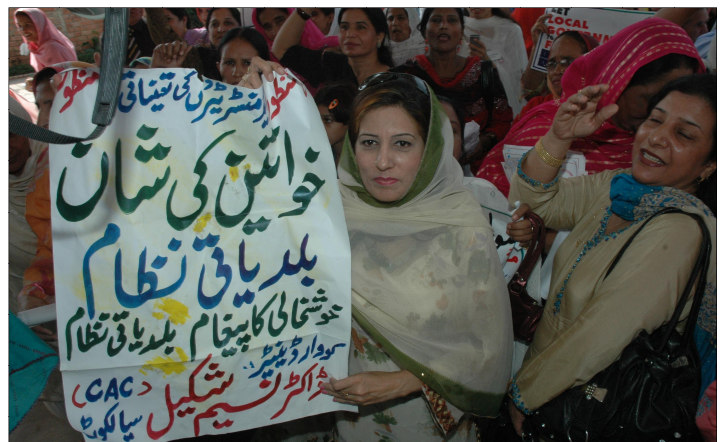 نامنظور
ایڈمنسٹریٹرز کی تعیناتی
نامنظور
خواتین کی شان
بلدیاتی نظام
خوشحالی کا پیغام بلدیاتی نظام
کووارڈینیٹر:
ڈاکٹر نسیم شکیل (CAC)
سیالکوٹ
LOCAL